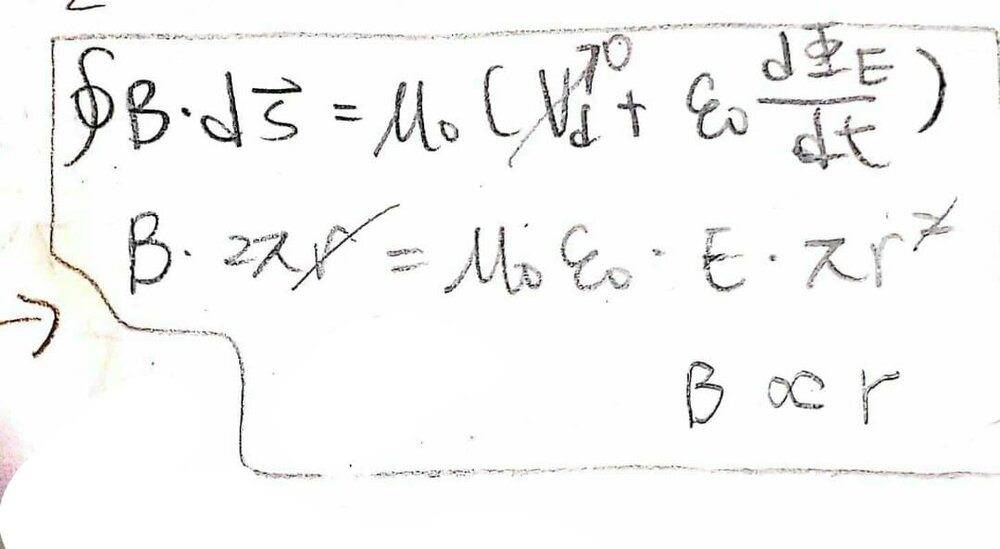 ∮B·ds⃗ = μ₀ (I_d→0 + ε₀ dΦ_E/dt)
B · 2πr = μ₀ε₀ · E · πr²
B ∝ r